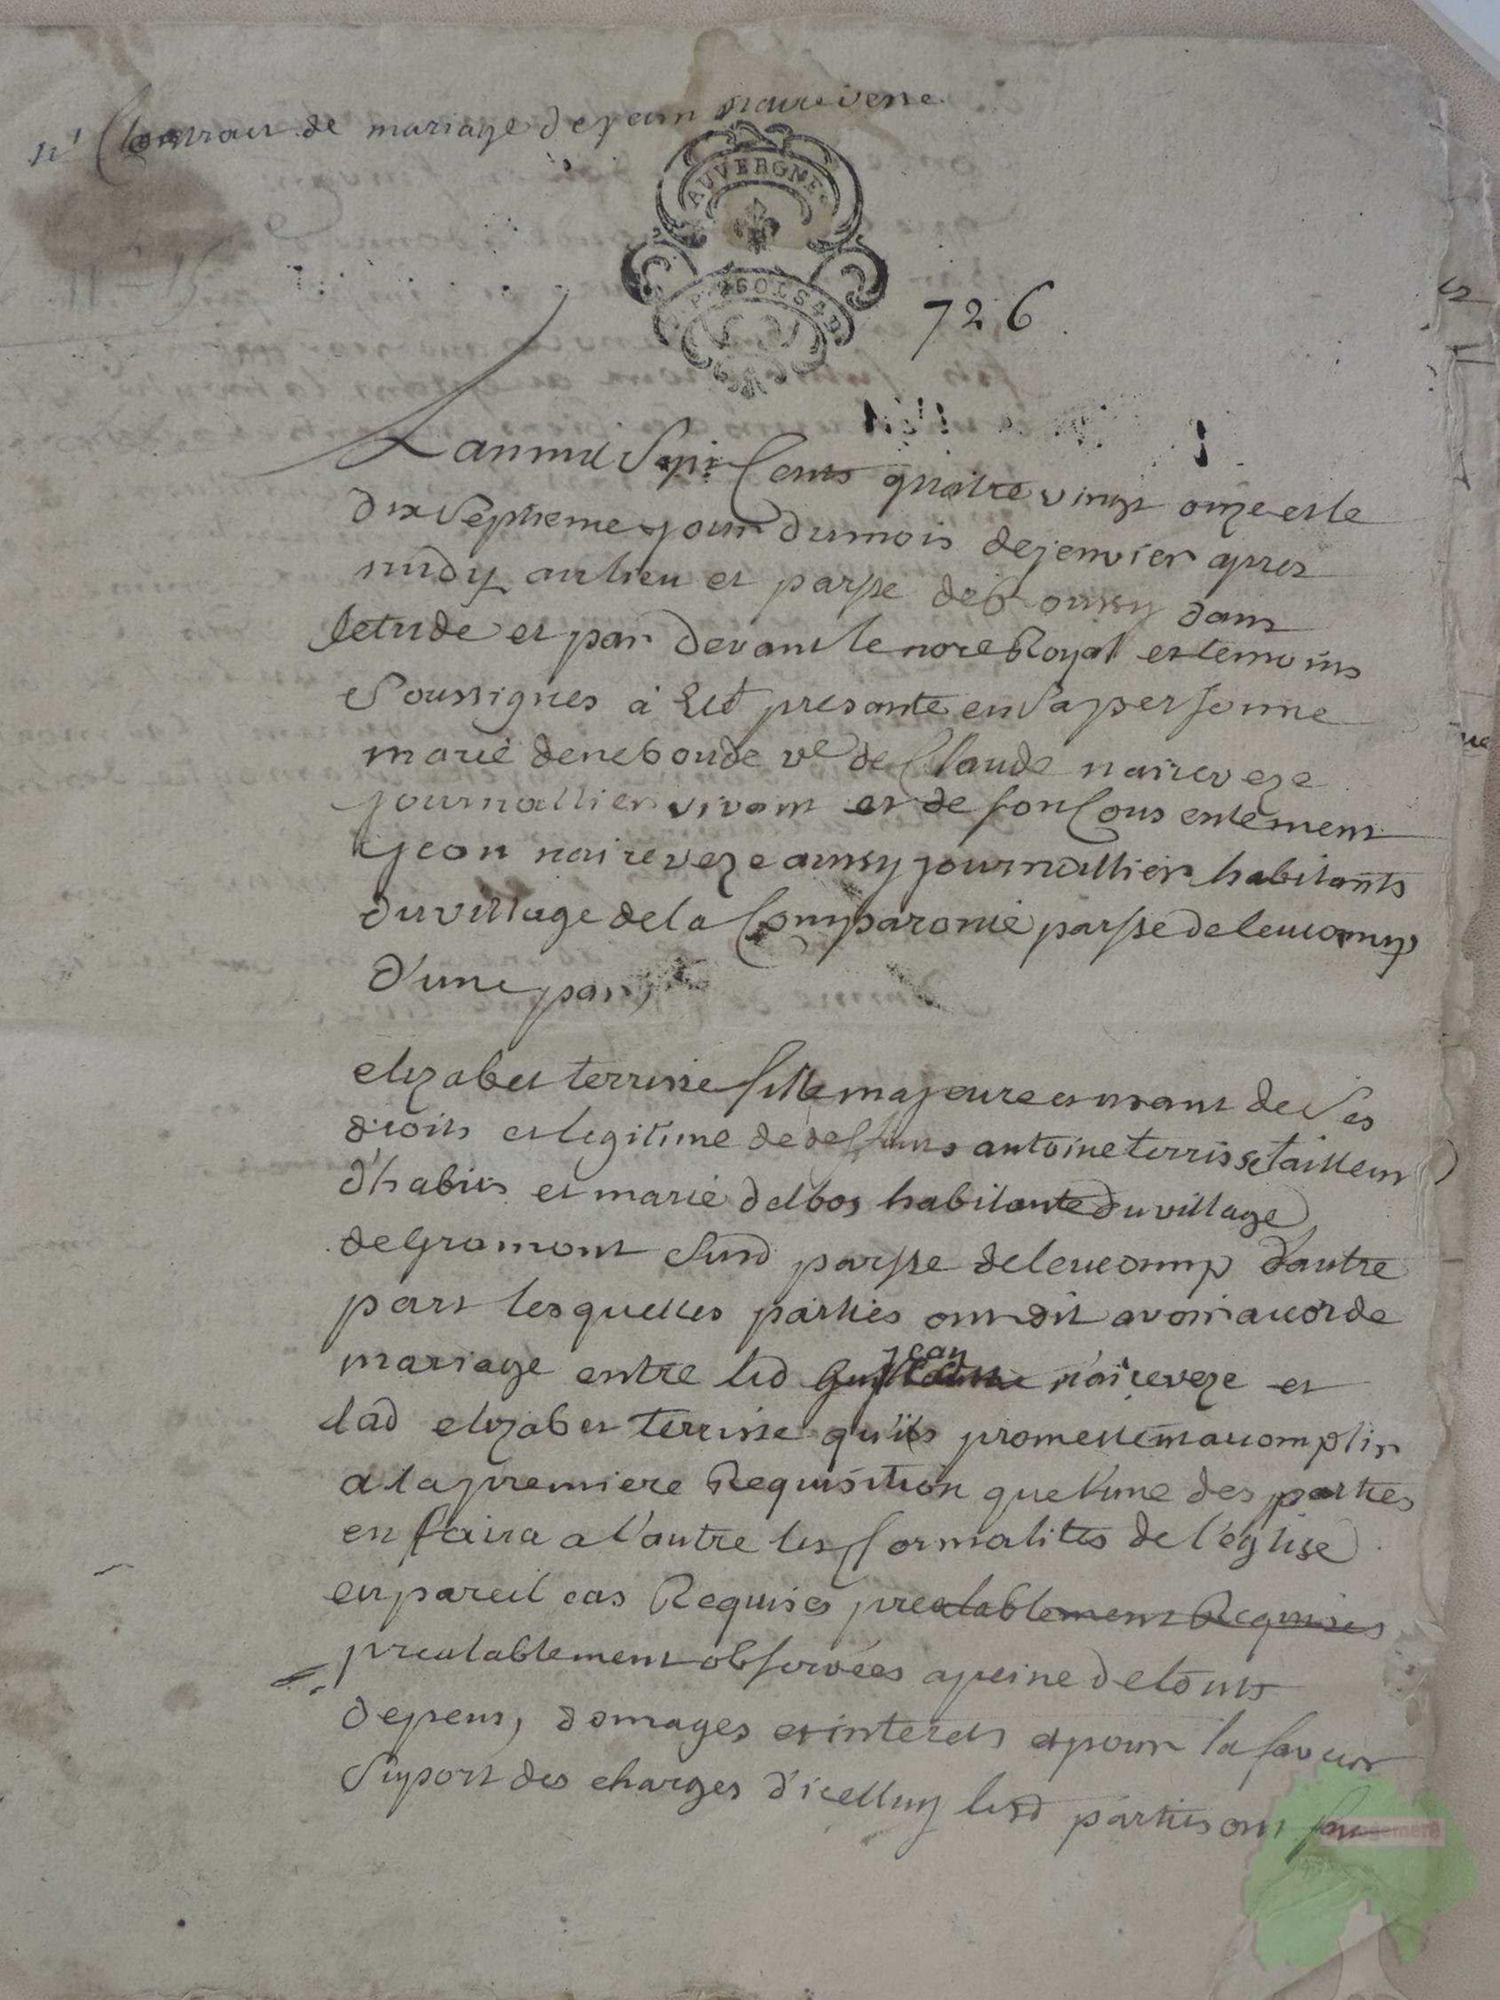 nº 1 Contract de mariage de jean naireveze
AUVERGNE
SOLS 4 D
726
Lan mil Sept Cents quatre vingt onze et le
dix Septieme jour du mois de jenvier apres
midy au lieu et parsse de dans
letude et par devant le nore Royal et temoins
Soussignes à Eté presante en Sa personne
marie deneboude ve de Claude naireveze
journallier vivant et de son Consentement
jean naireveze aussy journallier habitants
du village de la Comparonie parsse de leucamp
d'une part,
elizabet terrisse fille majeure et usant de Ses
droits et legitime de deffunts antoine terrisse tailleur
d'habits et marie delbos habitante du village
de Gramont Susd parsse de leucamp d'autre
part lesquelles parties ont dit avoir accordé
mariage entre led jean naireveze et
lad elizabet terrisse qu'ils promettent accomplir
a la premiere Requisition que l'une des parties
en faira a l'autre les formalités de l'église
en pareil cas Requises prealablement Requises
prealablement observées a peine de touts
depens, domages et interets et pour la faveur
Suport des charges d'icelluy lesd parties ont fait